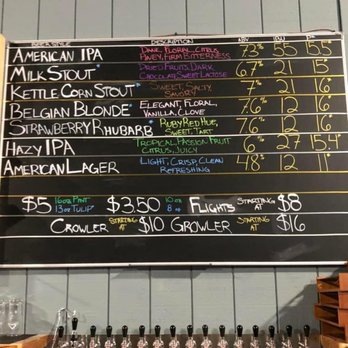 BEER STYLE DESCRIPTION ABV IBU
AMERICAN IPA DANK, FLORAL, CITRUS PINEY, FIRM BITTERNESS 7.2% 55 15.5°
MILK STOUT* DRIED FRUITS, DARK CHOCOLATE, SWEET LACTOSE 6.7% 21 15°
KETTLE CORN STOUT* SWEET, SALTY, SAVORY 7% 21 16°
BELGIAN BLONDE* ELEGANT, FLORAL, VANILLA, CLOVE 7.6% 12 16°
STRAWBERRY RHUBARB* RUBY RED HUE, SWEET, TART 7.6% 12 16°
HAZY IPA TROPICAL, PASSION FRUIT CITRUS, JUICY 6% 27 15.4°
AMERICAN LAGER LIGHT, CRISP, CLEAN REFRESHING 4.8% 12 11°
$5 16oz PINT 13oz TULIP* $3.50 10 oz 8 oz* FLIGHTS STARTING AT $8
CROWLER STARTING AT $10 GROWLER STARTING AT $16